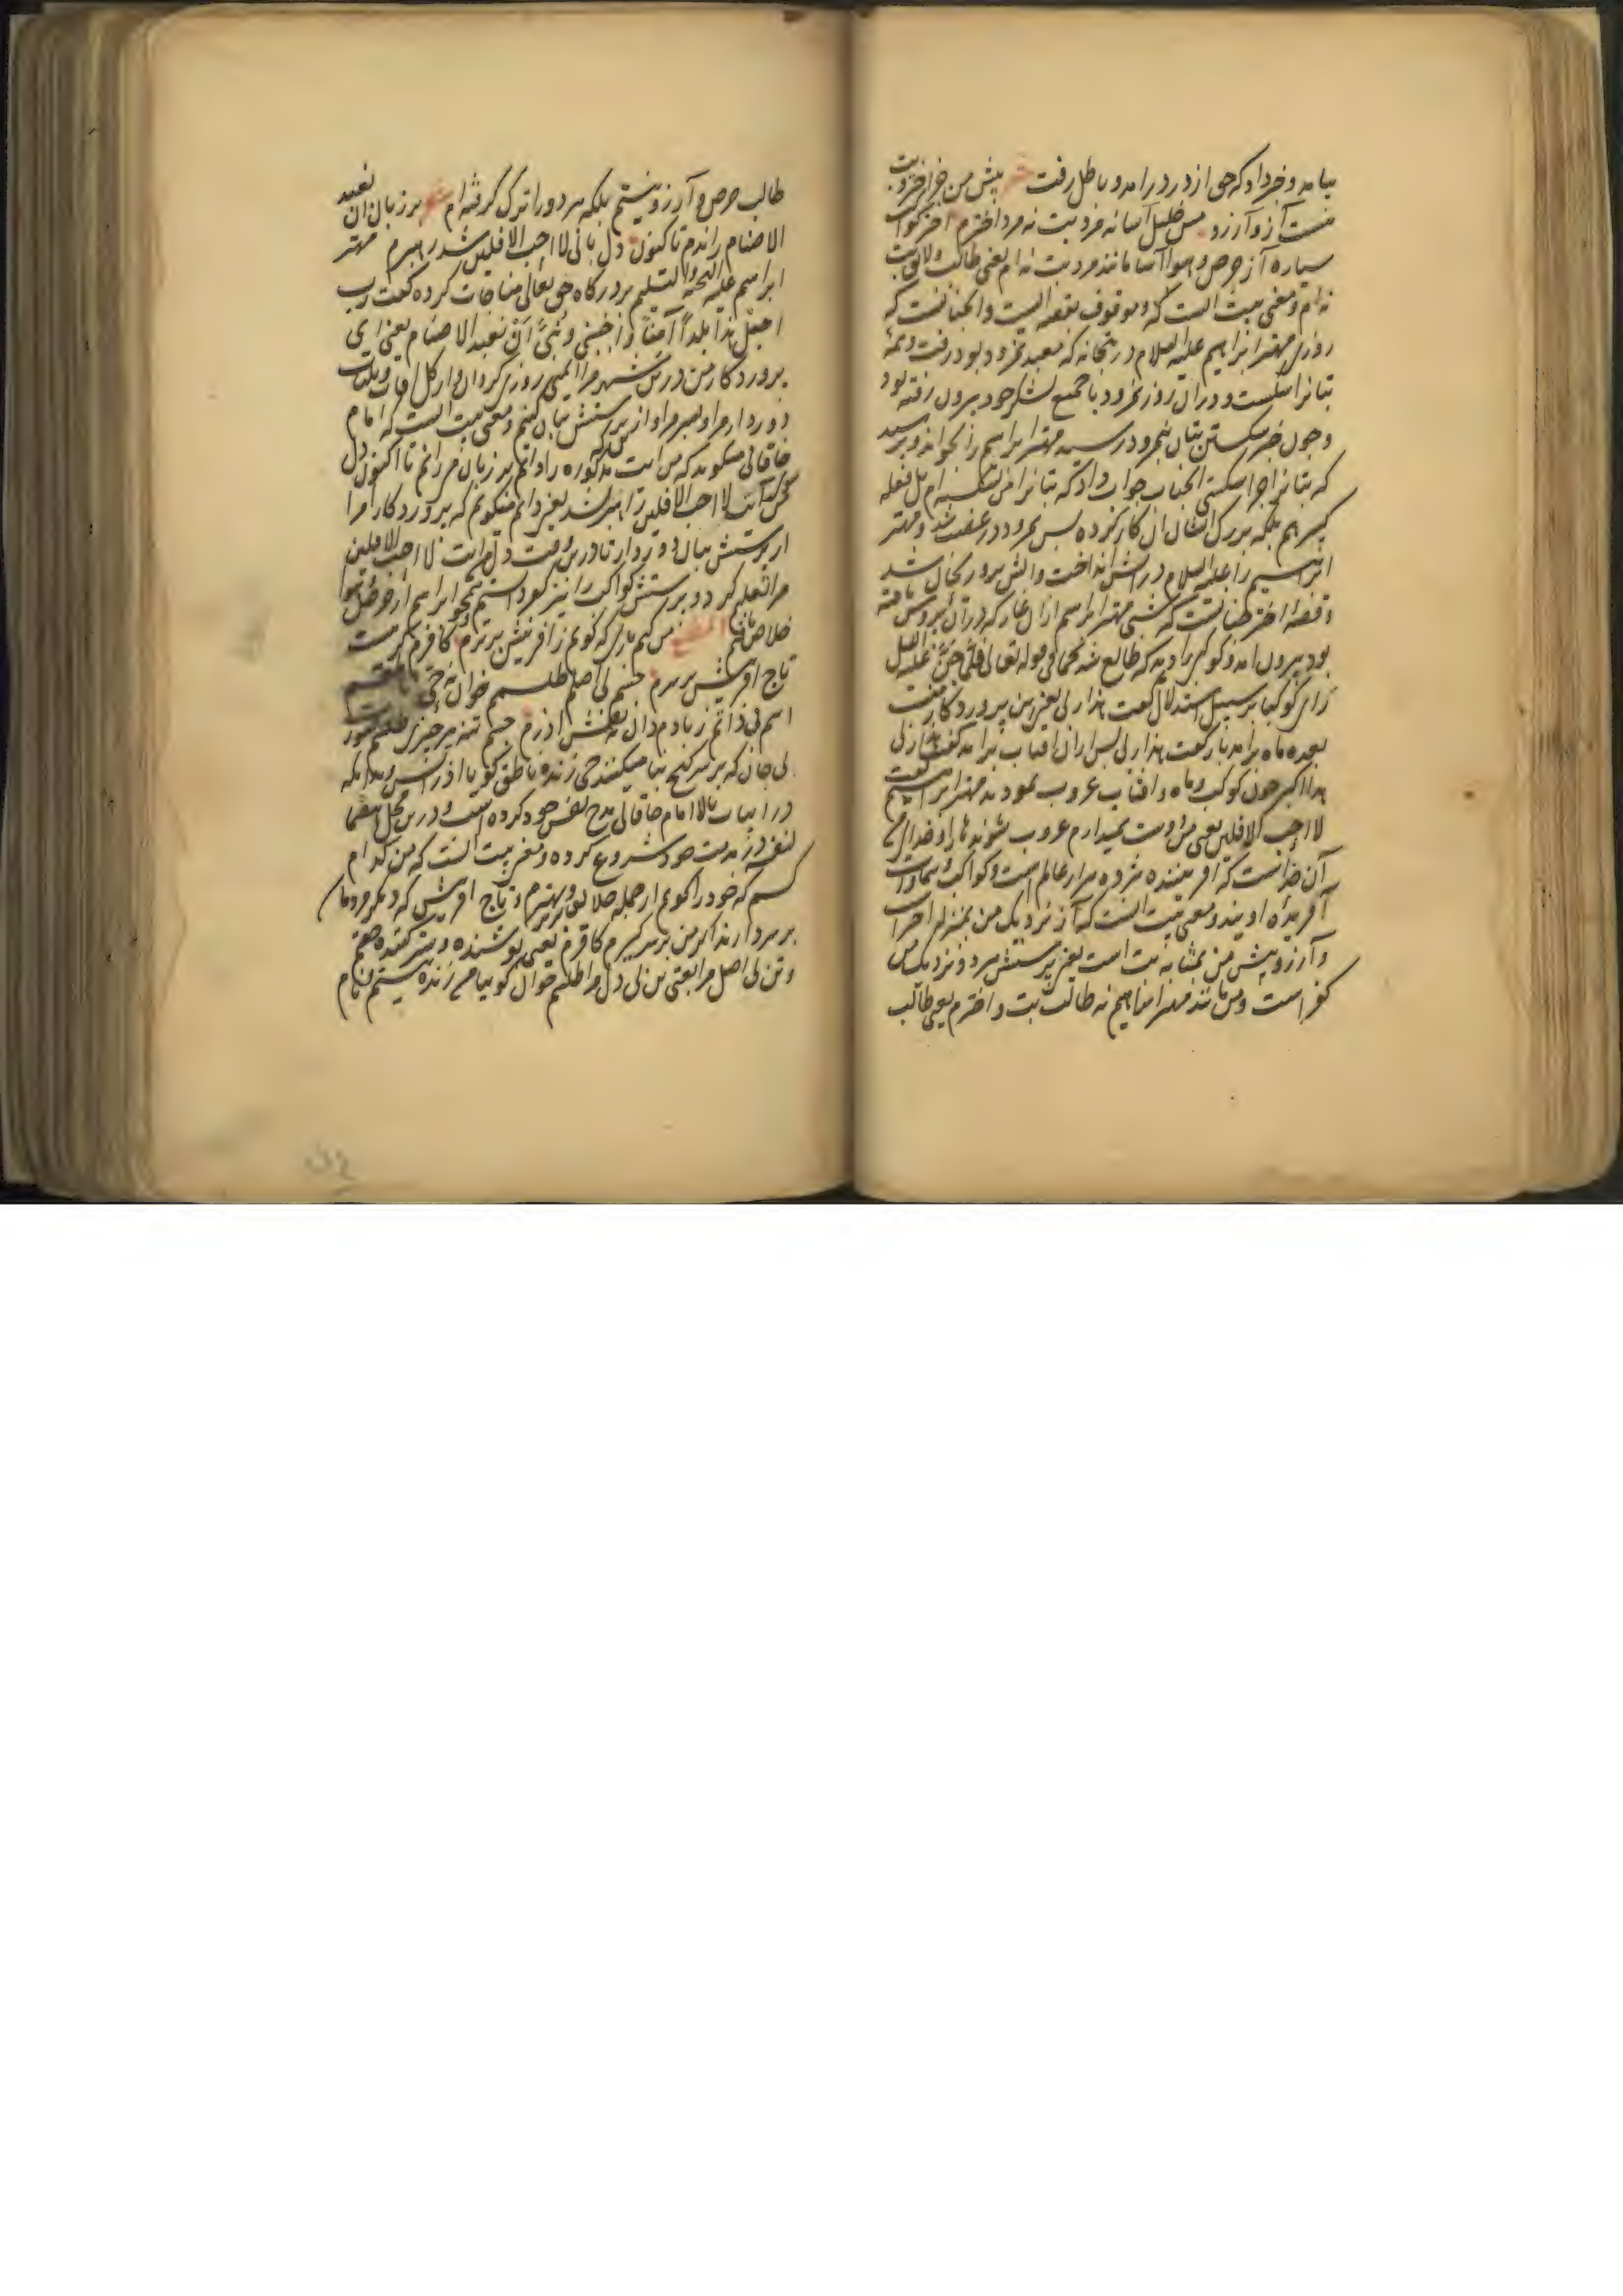 بیامد و خبر داد که حق از در درامد و باطل رفت پیش من جز اختر و بت
نیست آز و آرزو من خلیل آسا نه مرد بت نه مرد اخترم اختر کواکب
سیاره آز حرص و هوا آسا مانند مرد بت نه ام یعنی طالب و لایق بت
نه ام و معنی بیت انست که موقوف بقصه ایست و آنچنانست که
روزی مهتر ابراهیم علیه السلام در بتخانه که معبد نمرود بود رفت و همه
بتانرا شکست و دران روز نمرود با جمیع لشکر خود بیرون رفته بود
و چون خبر شکستن بتان بنمرود رسید مهتر ابراهیم را بخواند و پرسید
که بتانرا چرا شکستی انجناب جواب داد که بتانرا من نشکسته ام بل فعله
کبیرهم بلکه بزرگ ایشان ان کار کرده پس نمرود در غضب شد و مهتر
ابراهیم را علیه السلام در اتش انداخت و اتش برو ریحان شد
و قصه اختر چنانست که شبی مهتر ابراهیم ازان غار که دران پرورش یافته
بود بیرون امد و کوکبی را دید که طالع شد کما فی قوله تعالی فلما جن علیه اللیل
رای کوکبا بر سبیل استدلال گفت هذا ربی یعنی این پروردگار منست
بعده ماه برامد باز گفت هذا ربی پس ازان افتاب برامد گفت هذا ربی
هذا اکبر چون کوکب و ماه و افتاب غروب نمودند مهتر ابراهیم گفت
لا احب الافلین یعنی من دوست نمیدارم غروب شوندها را و خدای
آن خداست که افریننده هژده هزار عالم است و کواکب و سماوات
آفریده اویند و معنی بیت انست که آز نزدیک من بمنزله اختر است
و آرزو پیش من بمثابه بت است یعنی پرستش هر دو نزدیک من
کفر است و من مانند مهتر ابراهیم نه طالب بت و اخترم یعنی طالب
طالب حرص و آرزو نیستم بلکه هر دو را ترک گرفته ام شعر بر زبان ان نعبد
الاصنام راندم تا کنون دل بانی لا احب الافلین شد رهبرم مهتر
ابراهیم علیه التحیه والتسلیم بدرگاه حق تعالی مناجات کرده گفت رب
اجعل هذا بلداً آمناً و اجنبنی و بنیّ أن نعبد الاصنام یعنی ای
پروردگار من درین شهر مرا ایمنی روزی گردان و از کل افات و بلیات
دور دار مرا و پسر مرا و از پرستش بتان کنم و معنی بیت انست که امام
خاقانی میگوید که من ایت مذکوره را دایم بر زبان میرانم تا اکنون دل
من که ایت لا احب الافلین را رهبر شد یعنی دایم میگویم که پروردگارا مرا
از پرستش بتان دور دار تا درین وقت دلم ایت لا احب الافلین
مرا تعلیم کرد و پرستش کواکب را نیز کفر دانستم و همچو ابراهیم از حرص و هوا
خلاص یافتم المطلع من کیم باری که گویی ز افرینش برترم کافرم گر هست
تاج افرینش بر سرم جسم بی اصلم طلسم خوان نه حی ناطقم
اسم بی ذاتم ز بادم دان نه نقش اذرم جسم تنه هر چیزی طلسم صورت
بی جان که بر سر گنج بنا میکنند حی زنده ناطق گویا اذر
در ابیات بالا امام خاقانی مدح نفس خود کرده است و درین محل
لنفسه در مذمت خود شروع کرده و معنی بیت انست که من کدام
کسم که خود را گویم از جمله خلایق برتر و بهترم و تاج افرینش که دیگر مردمان
بر سر دارند اگر من بر سر گیرم کافرم یعنی پوشنده و ستر کننده حقم
و تن بی اصل مرا یعنی تن بی دل مرا طلسم خوان گویا و حی زنده نیستم نام